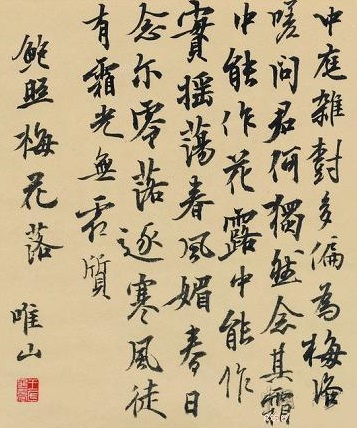 中庭雜樹多偏為梅咨
嗟問君何獨然念其霜
中能作花露中能作
實摇蕩春風媚春日
念尔零落逐寒風徒
有霜光無霜質
鮑照梅花落
唯山